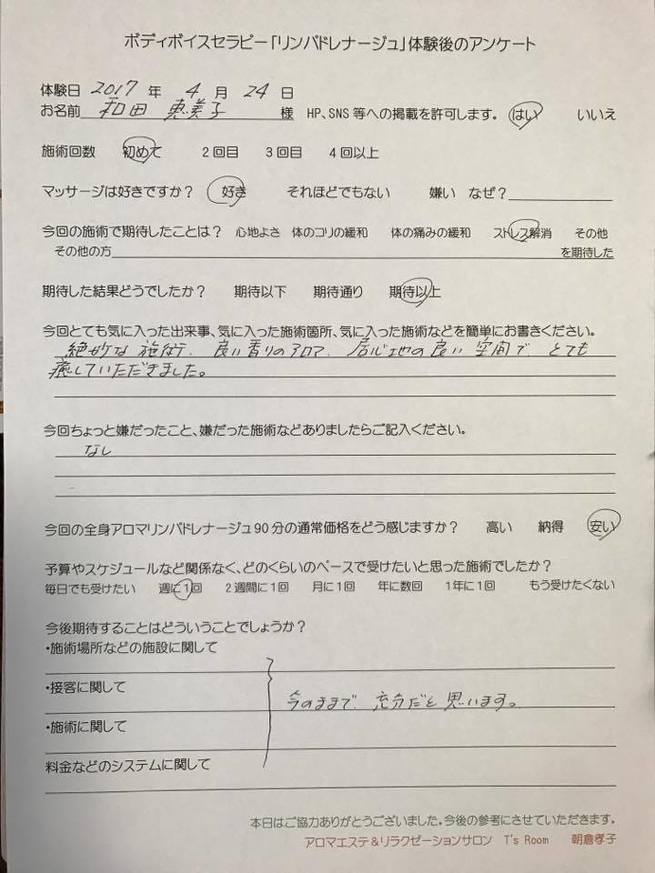 ボディボイスセラピー「リンパドレナージュ」体験後のアンケート
体験日 2017 年 4 月 24 日
お名前 和田 恵美子 様 HP、SNS 等への掲載を許可します。 はい いいえ
施術回数 初めて 2回目 3回目 4回以上
マッサージは好きですか? 好き それほどでもない 嫌い なぜ?
今回の施術で期待したことは? 心地よさ 体のコリの緩和 体の痛みの緩和 ストレス解消 その他
その他の方 を期待した
期待した結果どうでしたか? 期待以下 期待通り 期待以上
今回とても気に入った出来事、気に入った施術箇所、気に入った施術などを簡単にお書きください。
絶妙な施術、良い香りのアロマ、居心地の良い空間で とても
癒していただきました。
今回ちょっと嫌だったこと、嫌だった施術などありましたらご記入ください。
なし
今回の全身アロマリンパドレナージュ90分の通常価格をどう感じますか? 高い 納得 安い
予算やスケジュールなど関係なく、どのくらいのペースで受けたいと思った施術でしたか?
毎日でも受けたい 週に1回 2週間に1回 月に1回 年に数回 1年に1回 もう受けたくない
今後期待することはどういうことでしょうか?
・施術場所などの施設に関して
・接客に関して
今のままで 充分だと思います。
・施術に関して
料金などのシステムに関して
本日はご協力ありがとうございました。今後の参考にさせていただきます。
アロマエステ&リラクゼーションサロン T's Room 朝倉孝子